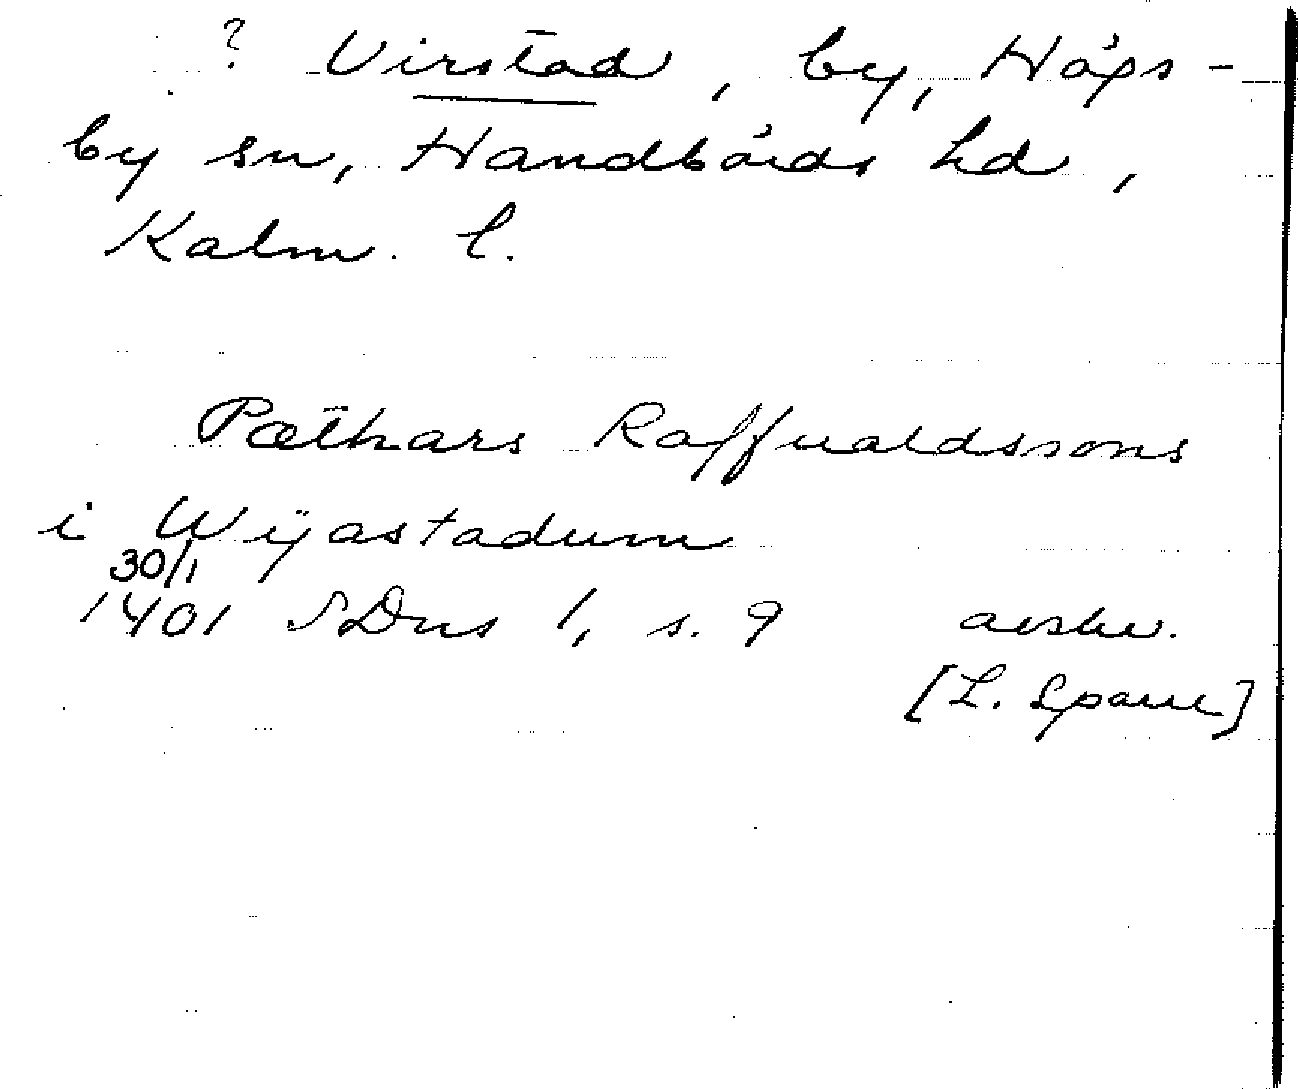 ? Virstad, by, Högs-
by sn, Handbörds hd,
Kalm. l.
Pæthars Raffualdssons
i Wijastadum
30/1
1401 SDns 1, s. 9 avskr.
[L. Sparre]